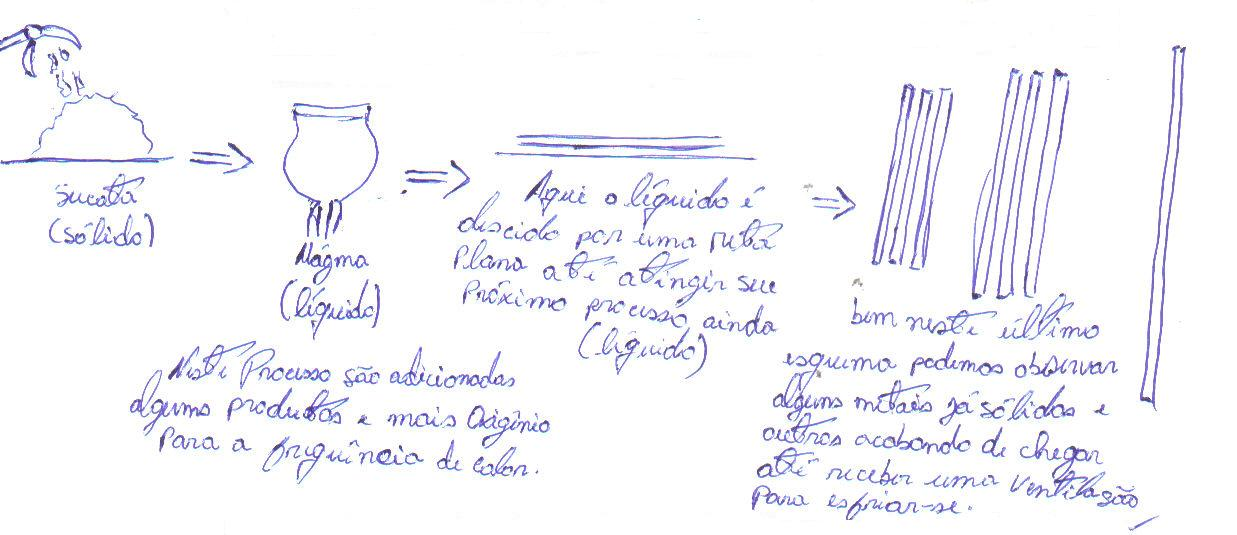 sucata
(sólido)
Mágma
(líquido)
Neste Processo são adicionados
alguns produtos e mais Oxigênio
Para a frequência de calor.
Aqui o líquido é
descido por uma reta
Plana até atingir seu
Próximo processo, ainda
(líquido)
bem neste último
esquema podemos observar
alguns metais já sólidos e
outros acabando de chegar
até receber uma ventilasão
Para esfriar-se.